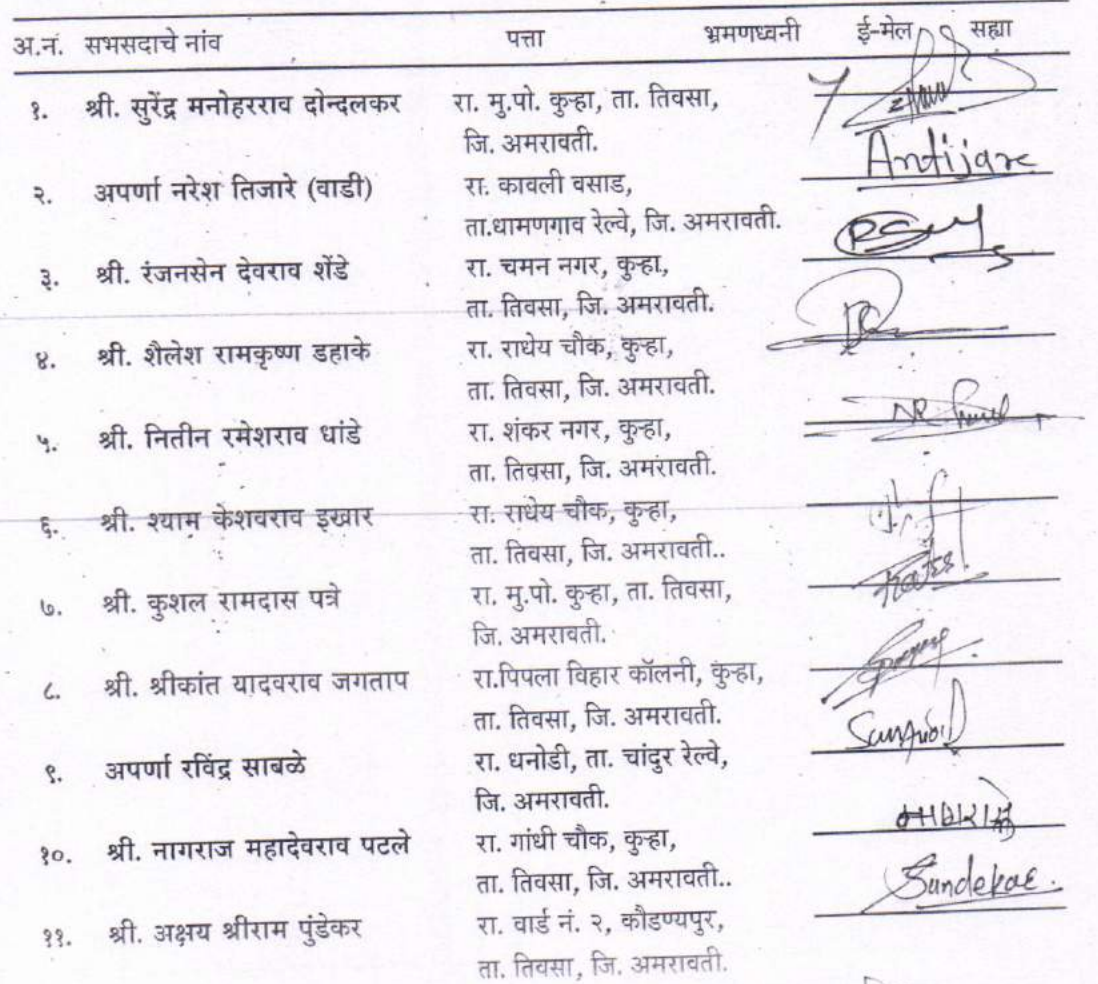 अ.नं. सभसदाचे नांव पत्ता भ्रमणध्वनी ई-मेल सह्या
१. श्री. सुरेंद्र मनोहरराव दोन्दलकर रा. मु.पो. कुऱ्हा, ता. तिवसा,
जि. अमरावती.
Antijare
२. अपर्णा नरेश तिजारे (वाडी) रा. कावली वसाड,
ता.धामणगाव रेल्वे, जि. अमरावती.
३. श्री. रंजनसेन देवराव शेंडे रा. चमन नगर, कुऱ्हा,
ता. तिवसा, जि. अमरावती.
४. श्री. शैलेश रामकृष्ण डहाके रा. राधेय चौक, कुऱ्हा,
ता. तिवसा, जि. अमरावती.
५. श्री. नितीन रमेशराव धांडे रा. शंकर नगर, कुऱ्हा,
ता. तिवसा, जि. अमरावती.
६. श्री. श्याम केशवराव इखार रा. राधेय चौक, कुऱ्हा,
ता. तिवसा, जि. अमरावती..
७. श्री. कुशल रामदास पत्रे रा. मु.पो. कुऱ्हा, ता. तिवसा,
जि. अमरावती.
८. श्री. श्रीकांत यादवराव जगताप रा.पिपला विहार कॉलनी, कुऱ्हा,
ता. तिवसा, जि. अमरावती.
९. अपर्णा रविंद्र साबळे रा. धनोडी, ता. चांदुर रेल्वे,
जि. अमरावती.
१०. श्री. नागराज महादेवराव पटले रा. गांधी चौक, कुऱ्हा,
ता. तिवसा, जि. अमरावती..
११. श्री. अक्षय श्रीराम पुंडेकर रा. वार्ड नं. २, कौडण्यपुर,
ता. तिवसा, जि. अमरावती.